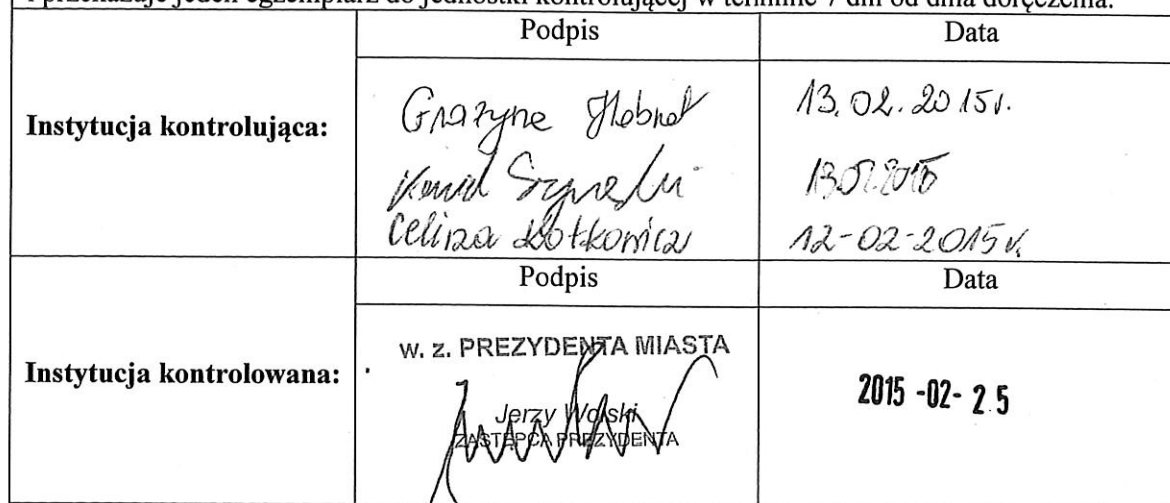 i przekazuje jeden egzemplarz do jednostki kontrolującej w terminie 7 dni od dnia doręczenia.
Podpis Data
Instytucja kontrolująca:
Grażyna 13.02.2015r.
13.02.2015
Celina 12-02-2015r.
Podpis Data
Instytucja kontrolowana:
w. z. PREZYDENTA MIASTA
Jerzy Wolski 2015 -02- 25
ZASTĘPCA PREZYDENTA